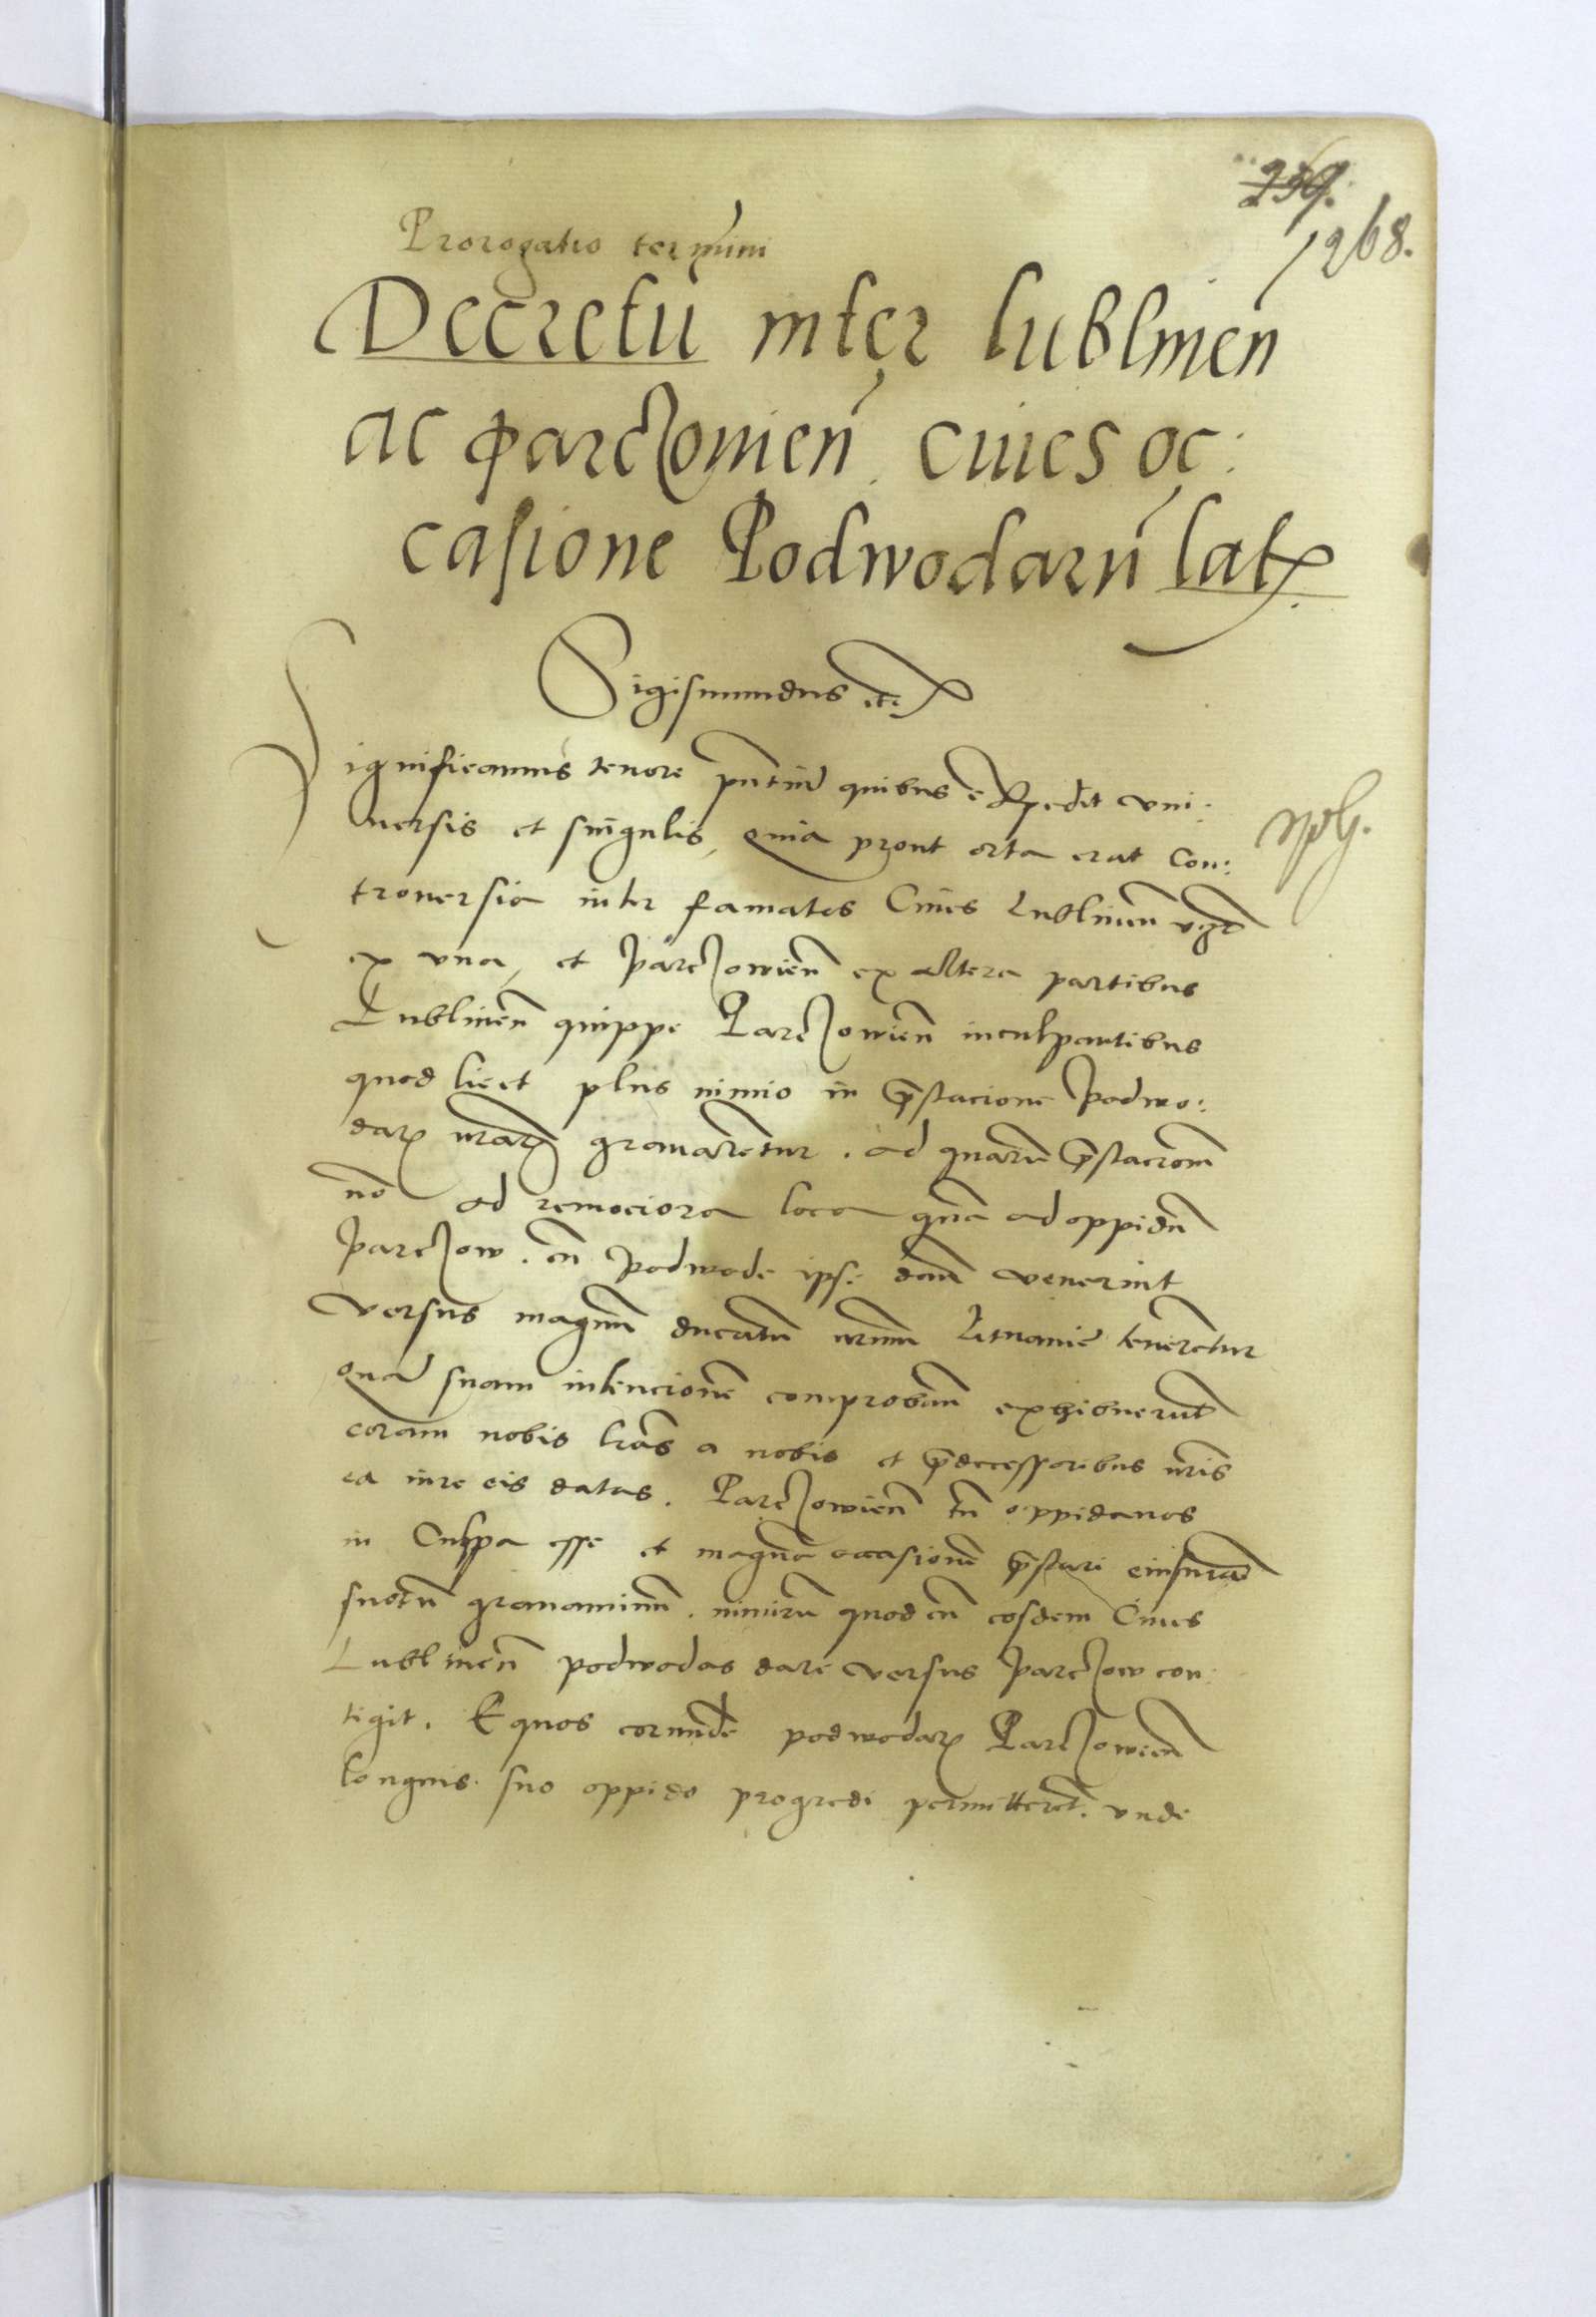 259.
1268.
Prorogatio termini
Decretū inter lublinen̄
ac parczovien̄ ciues oc:
casione Podwodarū lat
Sigismundus etc
Significamus tenore pn̄tium quibus expedit vni:
uersis et singulis, quia prout orta erat Con:
trouersia inter famatos Ciues Lublinen̄
ex vna, et Parczowien̄ ex altera partibus
Lublinen̄ quippe Parczowien̄ inculpantibus
quod licet plus nimio in p̄stacione Podwo:
darꝝ nr̄arꝝ grauarentur. ad quarum p̄stacionem
nō ad remociora loca quā ad oppidū
Parczow. cū podwode ipse dum venerint
versus magnum ducatum nr̄um Lituanie tenerētur
suam intencionem comproban̄ exhibuerūt
coram nobis lr̄as a nobis et p̄decessoribus nr̄is
ea in re eis datas. Parczowien̄ tn̄ oppidanos
in Culpa esse et magnā occasionem p̄stari
suorum grauaminum. nimirum quod cū eosdem Ciues
Lublinen̄ podwodas dare versus Parczow con:
tigit. Equos eorumdē podwodarꝝ Parczowien̄
longius suo oppido progredi permitterēt. vnde